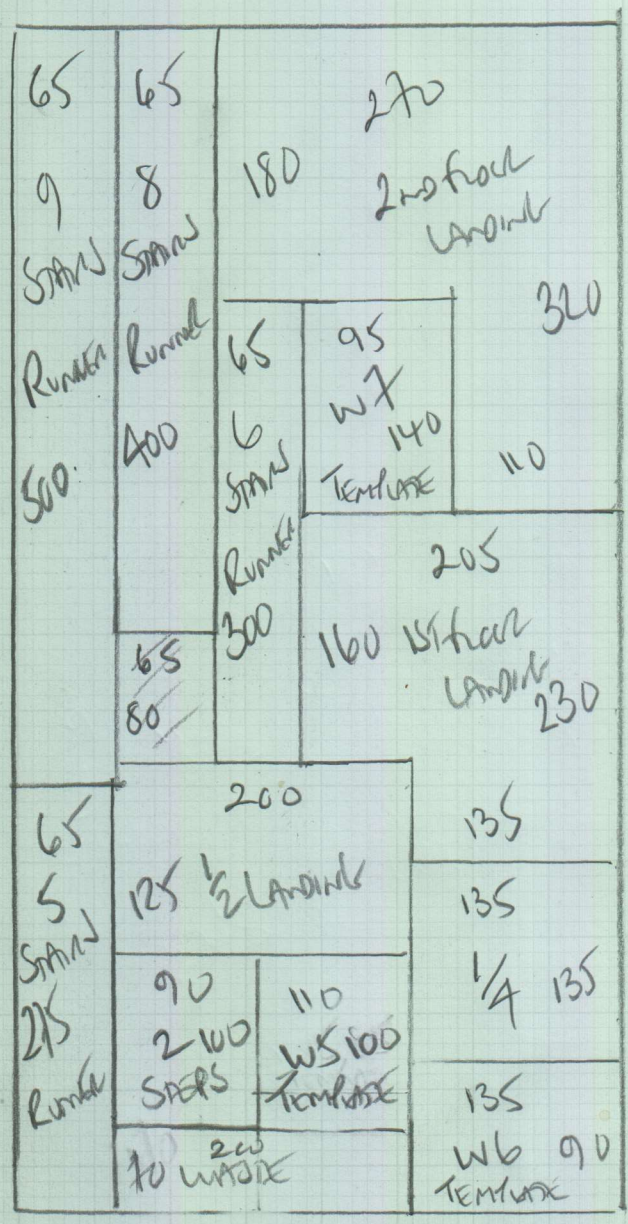 65
9
STAIRS
RUNNER
500
65
8
STAIRS
RUNNER
400
65
80
270
180
2ND FLOOR
LANDING
320
110
65
6
STAIRS
RUNNER
300
95
W7
140
TEMPLATE
205
160 1ST FLOOR
LANDING
230
135
65
5
STAIRS
215
RUNNER
200
125 1/2 LANDING
90
2 100
STEPS
110
W5 100
TEMPLATE
200
70
135
1/4 135
135
W6 90
TEMPLATE